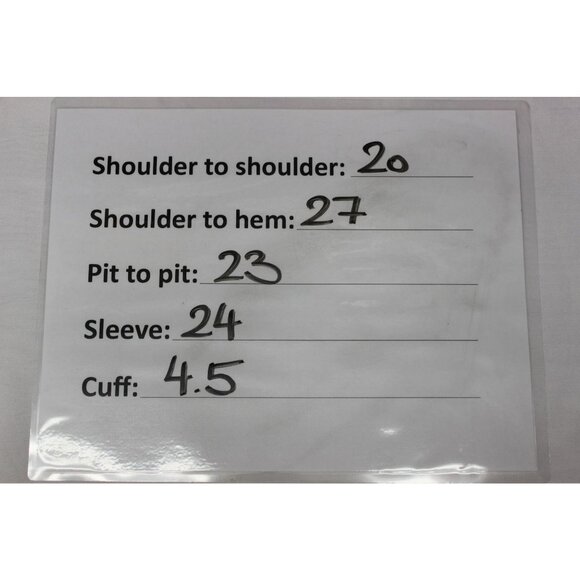 Shoulder to shoulder: 20
Shoulder to hem: 27
Pit to pit: 23
Sleeve: 24
Cuff: 4.5